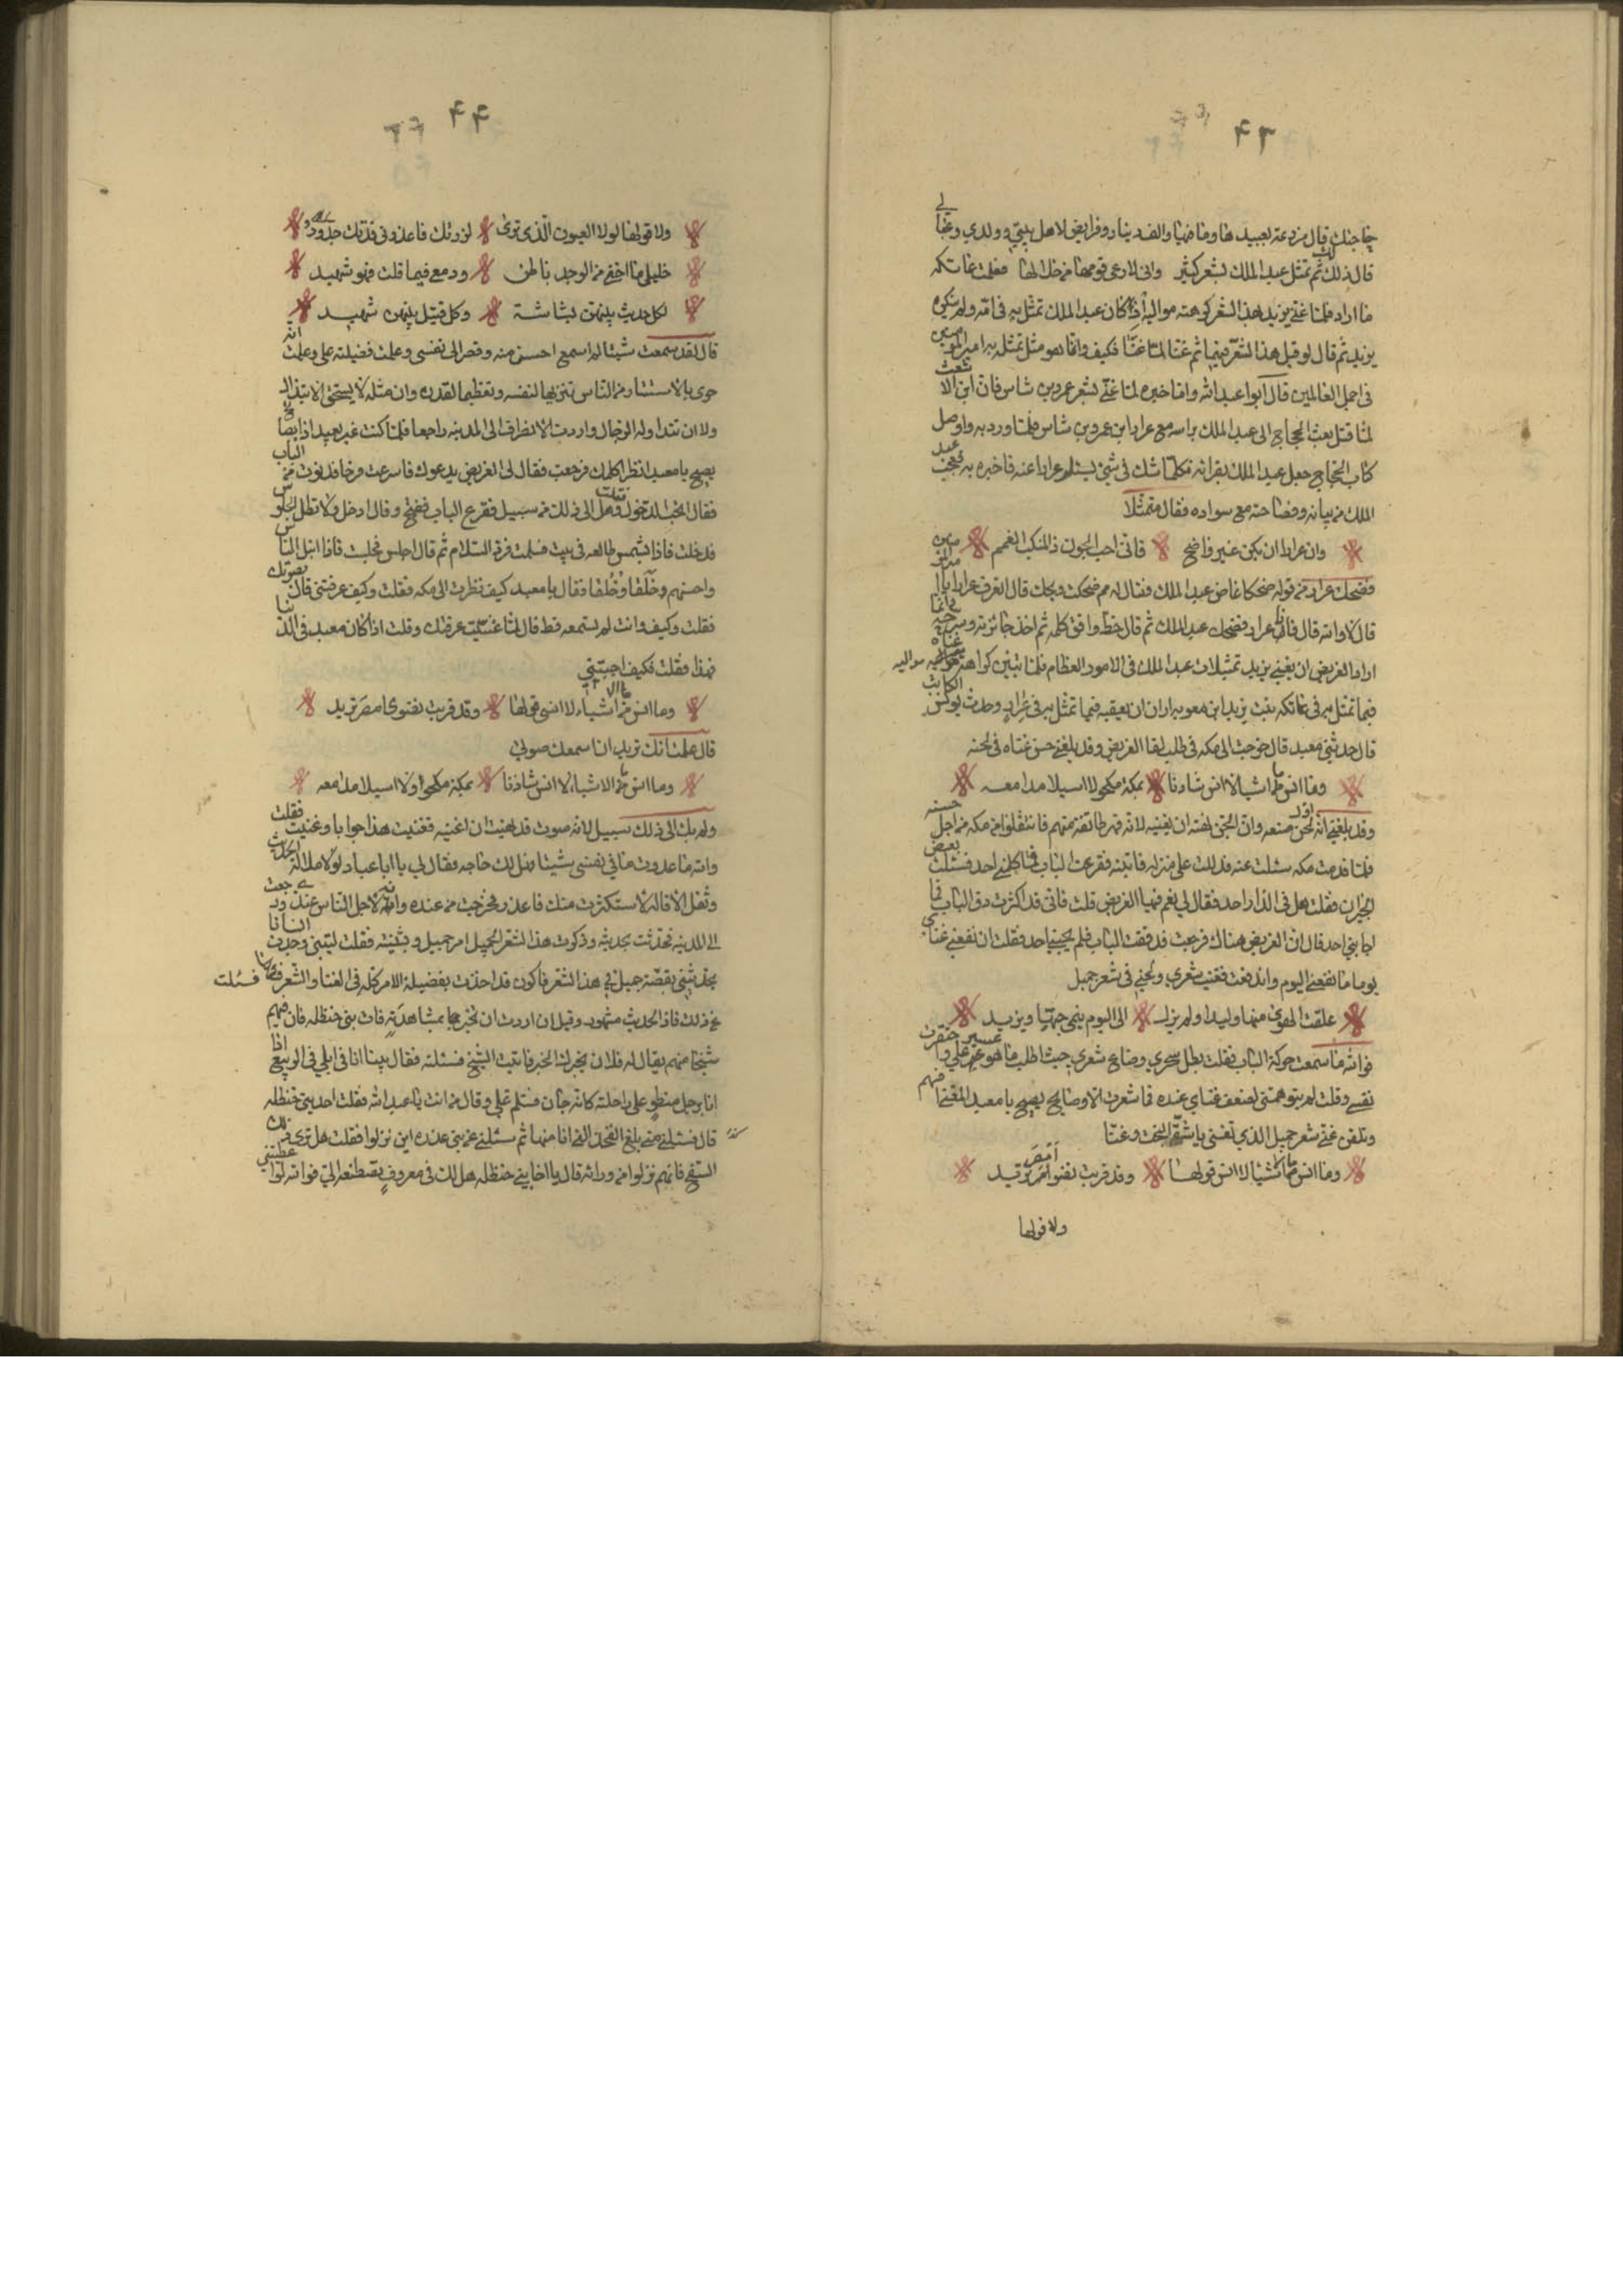 ٤٣
حاجتك قال مزرعة بعبيدها وما فيها والف دينار وفرايض لاهل بيتي وولدي وعيالي
قال ذلك لك ثم تمثل عبد الملك بشعر كثير وانى لارعى قومها من خلالها فعلمت عاتكه
ما اراد فلما غنى يزيد بهذا الشعر كرهته مواليه اذ كان عبد الملك تمثل به في امه ولم يكره
يزيد ثم قال لو قيل هذا الشعر فيها ثم غنا لما عيبا فكيف وانما هو مثل تمثل به امير المومنين
في اجمل العالمين قال ابوا عبد الله واما خبره لما غنى بشعر عمرو بن شاس فان ابن الاشعث
لما قتل بعث الحجاج الى عبد الملك براسه مع عرار ابن عمرو بن شاس فلما ورد به واوصل
كتاب الحجاج جعل عبد الملك يقرا فكلما شك في شئ يسئل عرارا عنه فاخبره به فعجب عبد
الملك من بيانه وفصاحته مع سواده فقال متمثلا
وان عرارا ان يكن غير واضح فاني احب الجون ذا المنكب الغمم
فضحك عرار من قوله ضحكا غاض عبد الملك فقال له مم ضحكت ويحك قال اتعرف عرارا يا امير المومنين
قال لا والله قال فانا عرار فضحك عبد الملك ثم قال حظ وافق كلمه ثم اخذ جائزته وسرحه
اراد الغريض ان يغنى يزيد تمثيلات عبد الملك في الامور العظام فلما تبين كراهة مواليه
فيما تمثل به في عاتكه بنت يزيد ابن معويه اراد ان يعقبه فيما تمثل به في عرار وحدث يونس الكاتب
قال حدثني معبد قال خرجت الى مكه في طلب لقا الغريض وقد بلغني حسن غناه في لحنه
وما انس ملاشيا لا انس شادنا بمكة مكحولا اسيلا مدامعه
وقد بلغني انه اول لحن صنعه وان الجن نهته ان يغنيه لانه فتن طائفة منهم فانتقلوا من مكه من اجل حسنه
فلما قدمت مكه سئلت عنه فدللت على منزله فاتيته فقرعت الباب فما كلمني احد فسئلت بعض
الجيران فقلت هل في الدار احد فقال لي نعم فيها الغريض قلت فاني قد اكثرت دق الباب فما
اجابني احد قال ان الغريض هناك فرجعت فدققت الباب فلم يجبني احد فقلت ان نفعني غناي
يوما ما نفعني اليوم واندفعت فغنيت شعري ولحني في شعر جميل
علقت الهوى منها وليدا ولم يزل الى اليوم ينمى حبها ويزيد
فوالله ما سمعت حركة الباب فقلت بطل سحري وضاع شعري حيث اطلب ما هو عسير علي واحتقرت
نفسي وقلت لم يتوهمني لضعف غناي عنده فما شعرت الا وصايح يصيح يا معبد المغنى افهم
وتلقن عني شعر جميل الذي تغنى يا شقى البخت وغنا
وما انس ملاشيا لا انس قولها وقد قربت نضوى امصر تريد
ولا قولها
٤٤
ولا قولها لولا العيون الذى ترى لزرتك فاعذرنى فدتك جدود
خليلي ما اخفى من الوجد باطن ودمعي فيما قلت فهو شهيد
لكل حديث بينهن بشاشة وكل قتيل بينهن شهيد
قال لقد سمعت شيئا لم اسمع احسن منه وقصر الى نفسى وعلمت فضيلته على وعلمت انه
حرى بالاستتار من الناس تنزيها لنفسه وتعظيما لقدره وان مثله لا يستحق الابتذال
ولا ان تتداوله الرجال واردت الانصراف الى المدينه راجعا فلما كنت غير بعيد اذا بصايح
يصيح يا معبد انتظر اكلمك فرجعت فقال لى الغريض يدعوك فاسرعت فرحا فدنوت من الباب
فقال اتحب الدخول فقلت وهل الى ذلك من سبيل فقرع الباب ففتح وقال ادخل ولا تطل الجلوس
فدخلت فاذا بشمس طالعه في بيت فسلمت فرد السلام ثم قال اجلس فجلست فاذا انبل الناس
واحسنهم وخَلقا وخُلقا فقال يا معبد كيف نظرت الى مكه فقلت وكيف عرفتنى قال بصوتك
فقلت وكيف وانت لم تسمعه قط قال لما غنيت عرفتك وقلت اذا كان معبد في الدنيا
فهذا فقلت فكيف اجبتني
وما انس من اشياء لا انسى قولها وقد قربت نضوى امصر تريد
قال علمت انك تريد ان اسمعك صوتي
وما انس ملا الاشياء لا انس شادنا بمكة مكحولا ولا اسيلا مدامعه
ولم يك الى ذلك سبيل لانه صوت قد نهيت ان اغنيه فغنيت هذا جوابا وغنيت فقلت
والله ما عدوت ما في نفسى شيئا فهل لك حاجه فقال لي يا ابا عباد لولا ملالة الحديث
وثقل الاقاله لاستكثرت منك فاعذر فخرجت من عنده وانه لاجل الناس عندي ورجعت
الى المدينه فتحدثت بحديثه وذكرت هذا الشعر لجميل امر جميل وبثينه فقلت ليتنى وجدت انسانا
يحدثني بقصة جميل في هذا الشعر فاكون قد اخذت بفضيلة الامر كله فى الغنا والشعر فسئلت
عن ذلك فاذا الحديث مشهور وقيل ان اردت ان تخبر بمشاهدته فات بنى حنظله فان فيهم
شيخا منهم يقال له فلان يخبرك الخبر فاتيت الشيخ فسئلته فقال بينا انا في ابلي في الربيع اذا
انا برجل منطو على راحلته كانه جان فسلم علي وقال من انت يا عبد الله فقلت احد بنى حنظله
قال فسئلنى حتى بلغ الفخذ التي انا منها ثم سئلنى عن بنى عذره اين نزلوا فقلت هل ترى ذلك
السفح فانهم نزلوا من ورائه قال يا اخا بني حنظله هل لك في معروف تصطنعه الي فوالله لو اعطيتني